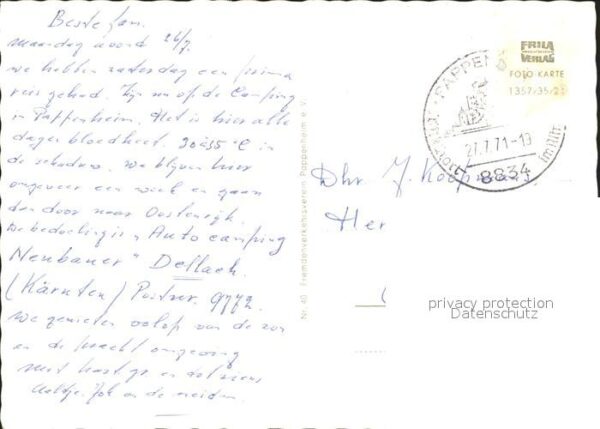 Beste fam.
maandag avond 26/7.
we hebben zaterdag een prima
reis gehad. Zijn nu op de Camping
in Pappenheim. Het is hier alle
dagen bloedheet. 30 à 35 °C in
de schaduw. We blijven hier
ongeveer een week en gaan
dan door naar Oostenrijk.
De bedoeling is „Auto camping
Neubauer" Dellach.
(Kärnten) Postnr. 9772.
we genieten volop van de zon
en de pracht omgeving
met hart. gr. en tot ziens
en de meiden.
Nr. 40 Fremdenverkehrsverein Pappenheim e.V.
FRILA
VERLAG
FOTO-KARTE
1357/35/2
PAPPENH
27.7.71-19
8834
im Altm
Dhr. J. Koopman
Her
privacy protection
Datenschutz